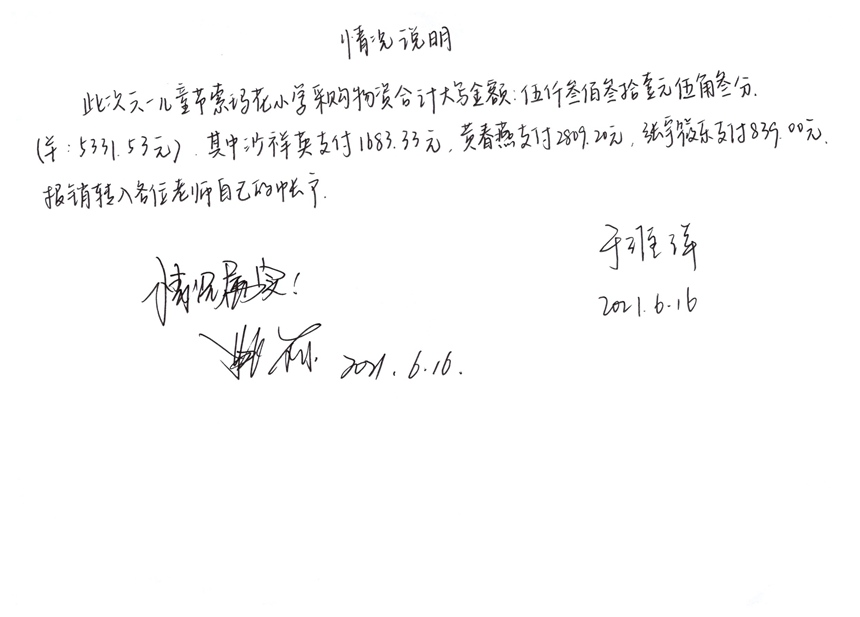 情况说明
此次六一儿童节索玛花小学采购物资合计大写金额：伍仟叁佰叁拾壹元伍角叁分.
(￥：5331.53元). 其中沙祥英支付1683.33元，黄春燕支付2809.20元，张宇筱乐支付839.00元.
报销转入各位老师自己的帐户.
于班祥
2021.6.16
情况属实！
2021.6.16.